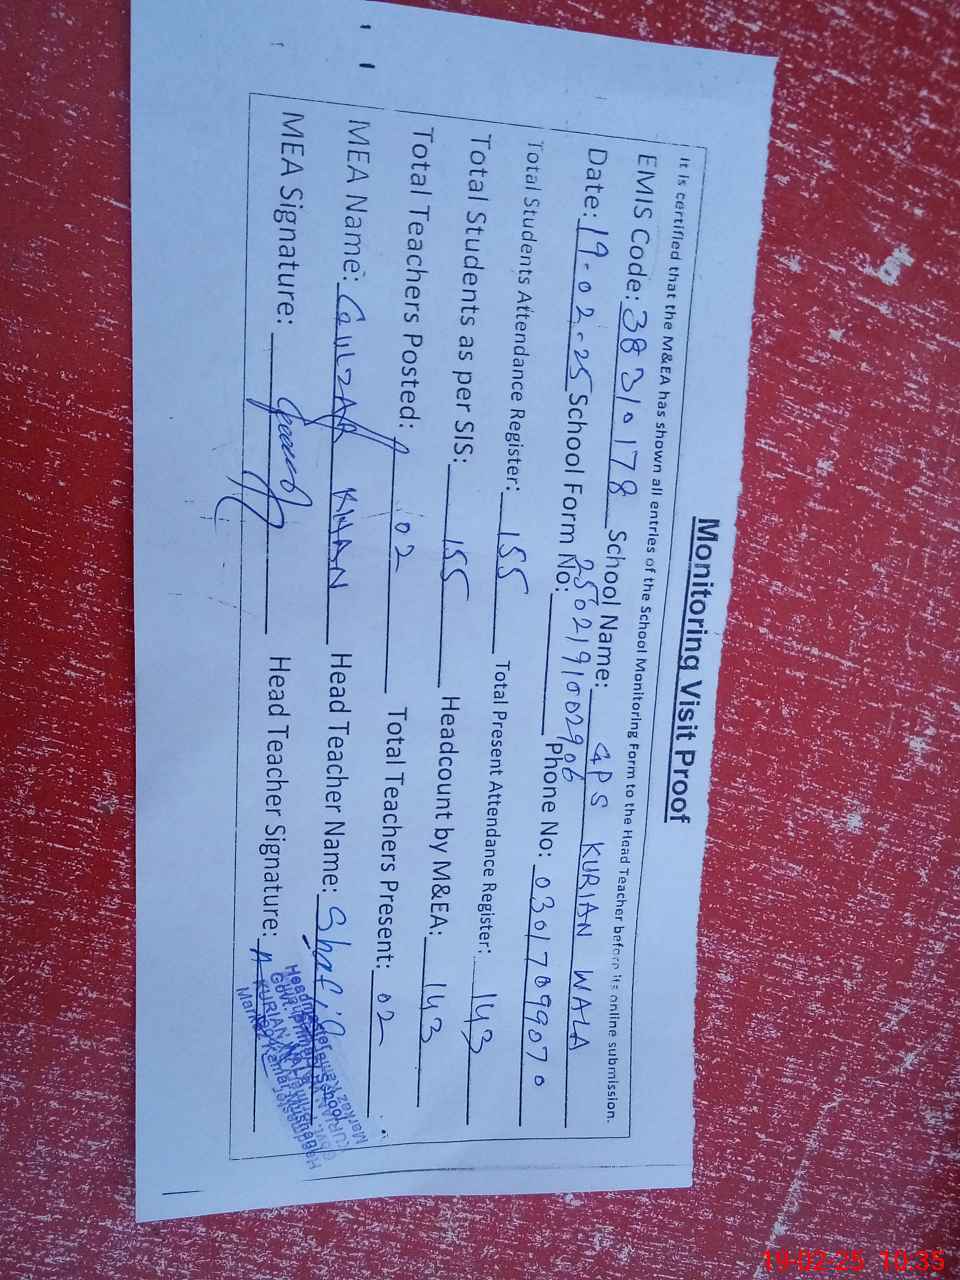 Monitoring Visit Proof
It is certified that the M&EA has shown all entries of the School Monitoring Form to the Head Teacher before its online submission.
EMIS Code: 38310178 School Name: GPS KURIAN WALA
Date: 19-02-25 School Form No: 2502191002906 Phone No: 03017099070
Total Students Attendance Register: 155 Total Present Attendance Register: 143
Total Students as per SIS: 155 Headcount by M&EA: 143
Total Teachers Posted: 02 Total Teachers Present: 02
MEA Name: GULZAR KHAN Head Teacher Name:
MEA Signature: Head Teacher Signature:
KURIAN WALA
19-02-25 10:35